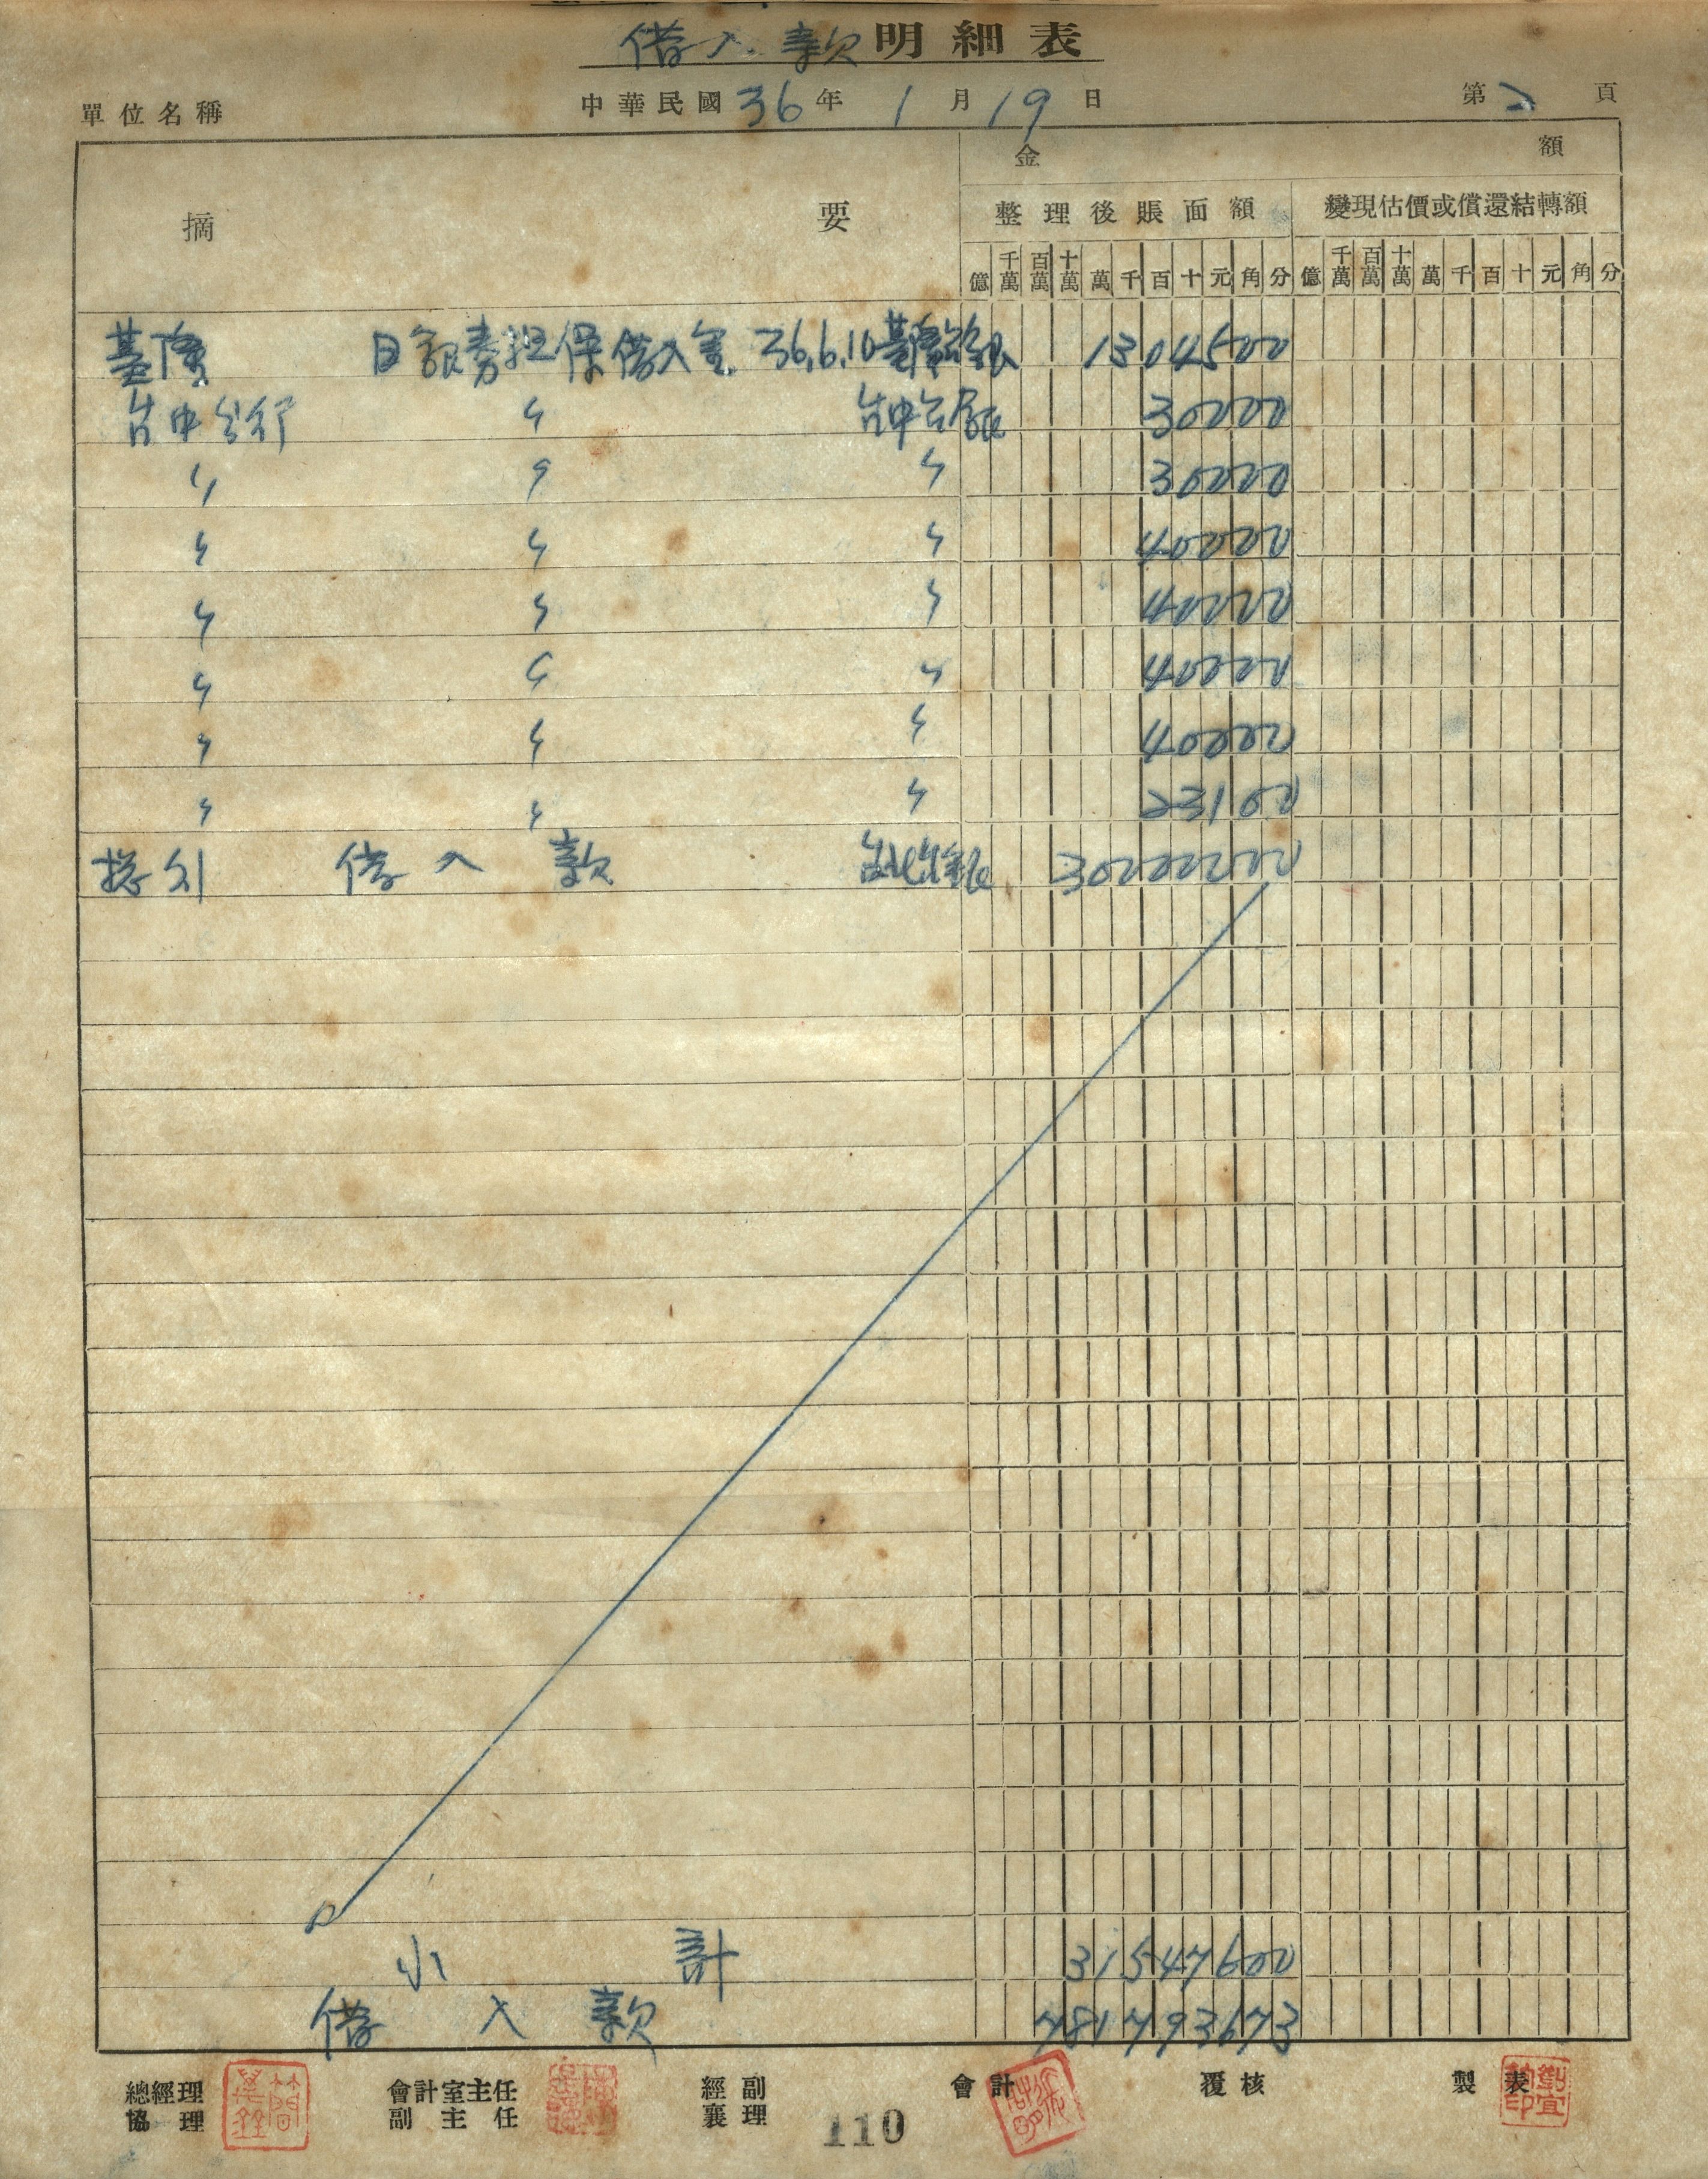 借入款明細表
單位名稱 中華民國36年1月19日 第2頁
金額
摘要 整理後賬面額 變現估價或償還結轉額
億 千萬 百萬 十萬 萬 千 百 十 元 角 分 億 千萬 百萬 十萬 萬 千 百 十 元 角 分
基隆 日銀券担保借入金 36.6.10 基隆台銀 1304500
台中分行 〃 台中台銀 30000
〃 〃 〃 30000
〃 〃 〃 40000
〃 〃 〃 40000
〃 〃 〃 40000
〃 〃 〃 40000
〃 〃 〃 23100
借入款 台北台銀 30000000
小計 31547600
借入款 781793673
總經理 協理 會計室主任 副主任 經副襄理 會計 覆核 製表
110